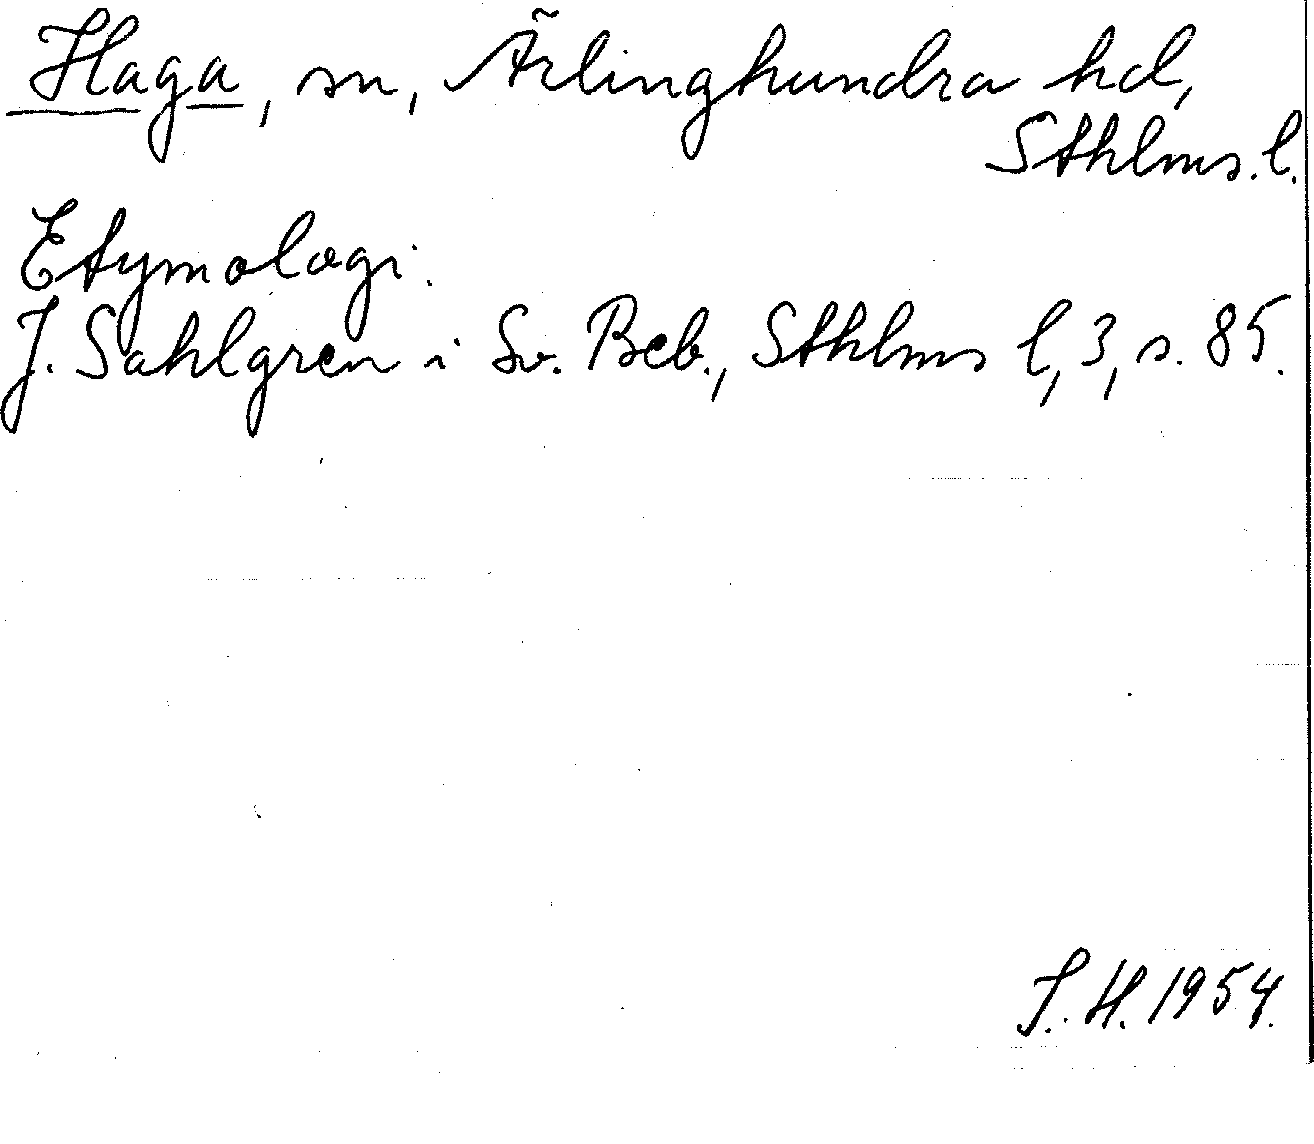 Haga, sn, Ärlinghundra hd,
Sthlms. l.
Etymologi.
J. Sahlgren i Sv. Beb., Sthlms l, 3, s. 85.
S. H. 1954.